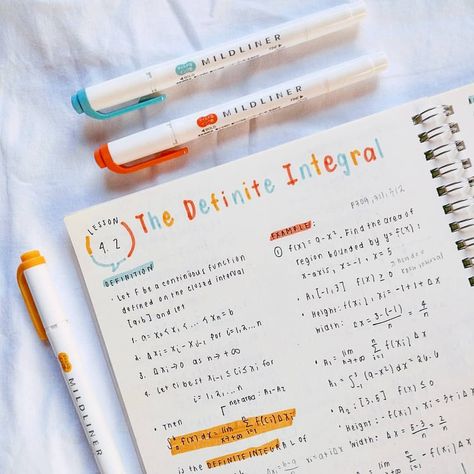 MILDLINER
MILDLINER
MILDLINER
LESSON
4.2
The Definite Integral
DEFINITION
• Let f be a continuous function
defined on the closed interval
[a,b] and let
1. a = x₀ < x₁ ... < xₙ = b
2. Δxᵢ = xᵢ - xᵢ-₁ for i=1,2,...n
3. Δxᵢ → 0 as n → +∞
4. Let ci be xᵢ-₁ ≤ Ci ≤ xi for
i = 1, 2, ... n
[net area: A₁-A₂
• Then
f(x) dx = lim n→+∞ Σ i=1 f(ci) Δxi
is the DEFINITE INTEGRAL of
EXAMPLE:
① f(x) = 9-x². Find the area of
region bounded by y = f(x),
x-axis, x=-1, x=5
• A₁ [-1,3] f(x) ≥ 0
• Height: f(xi), xi = -1 + i Δx
• Width: Δx = 3-(-1)/n = 4/n
• A₁ = lim n→+∞ Σ i=1 f(xi) Δx
• A₁ = ∫ (9-x²) dx =
• A₂: [3,5] f(x) ≤ 0
• Height: -f(xi), xi = 3 + i Δx
• Width: Δx = 5-3/n = 2/n